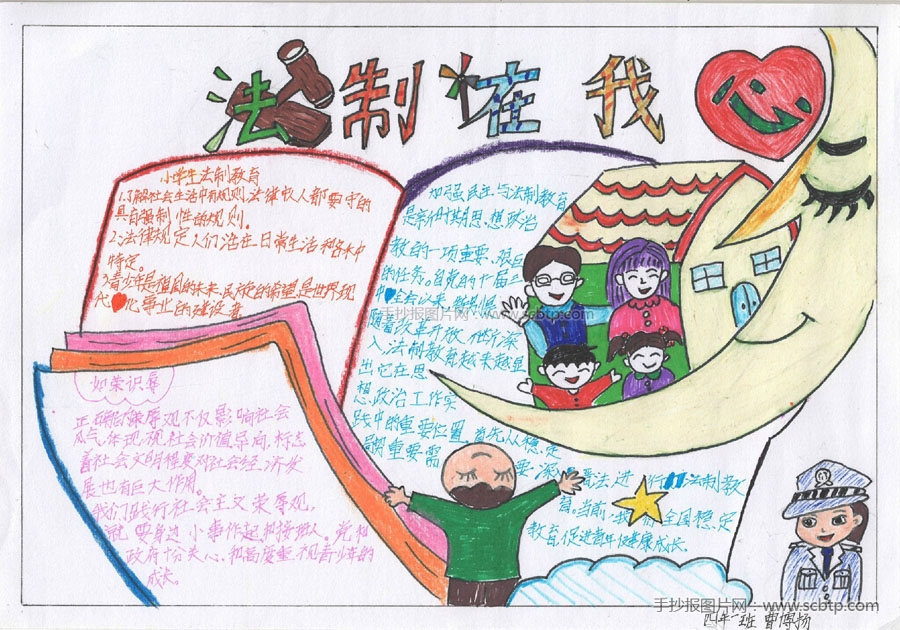 法制在我心
小学生法制教育
1.了解社会生活中有规则,法律收人都要守的
具自强制性的规则。
2.法律规定人们活在日常生活和各木中
特定。
3.青少年是祖国的未来,民族的希望,是世界现
代化事业的建设者
加强民主与法制教育
是新时期思想政治
教的一项重要、艰巨
的任务。自党的十届三
中全会以来,
随着改革开放
入,法制教育越来越显
出它在思
想政治工作实
践中的重要位置。首先从稳定
局势重要需要,深入普法,进行法制教
育。当前,我全国稳定
教育,促进青年健康成长。
如荣识辱
正确荣辱观不仅影响社会
风气、体现社会价值导向,标志
着社会文明程度对社会经济发
展也有巨大作用。
我们践行社会主义荣辱观,
就要身边小事作起和接班人。党和
政府十分关心、和高度重视青少年的
成长。
手抄报图片网:www.scbtp.com
手抄报图片网:www.scbtp.com
四年一班 曹博扬